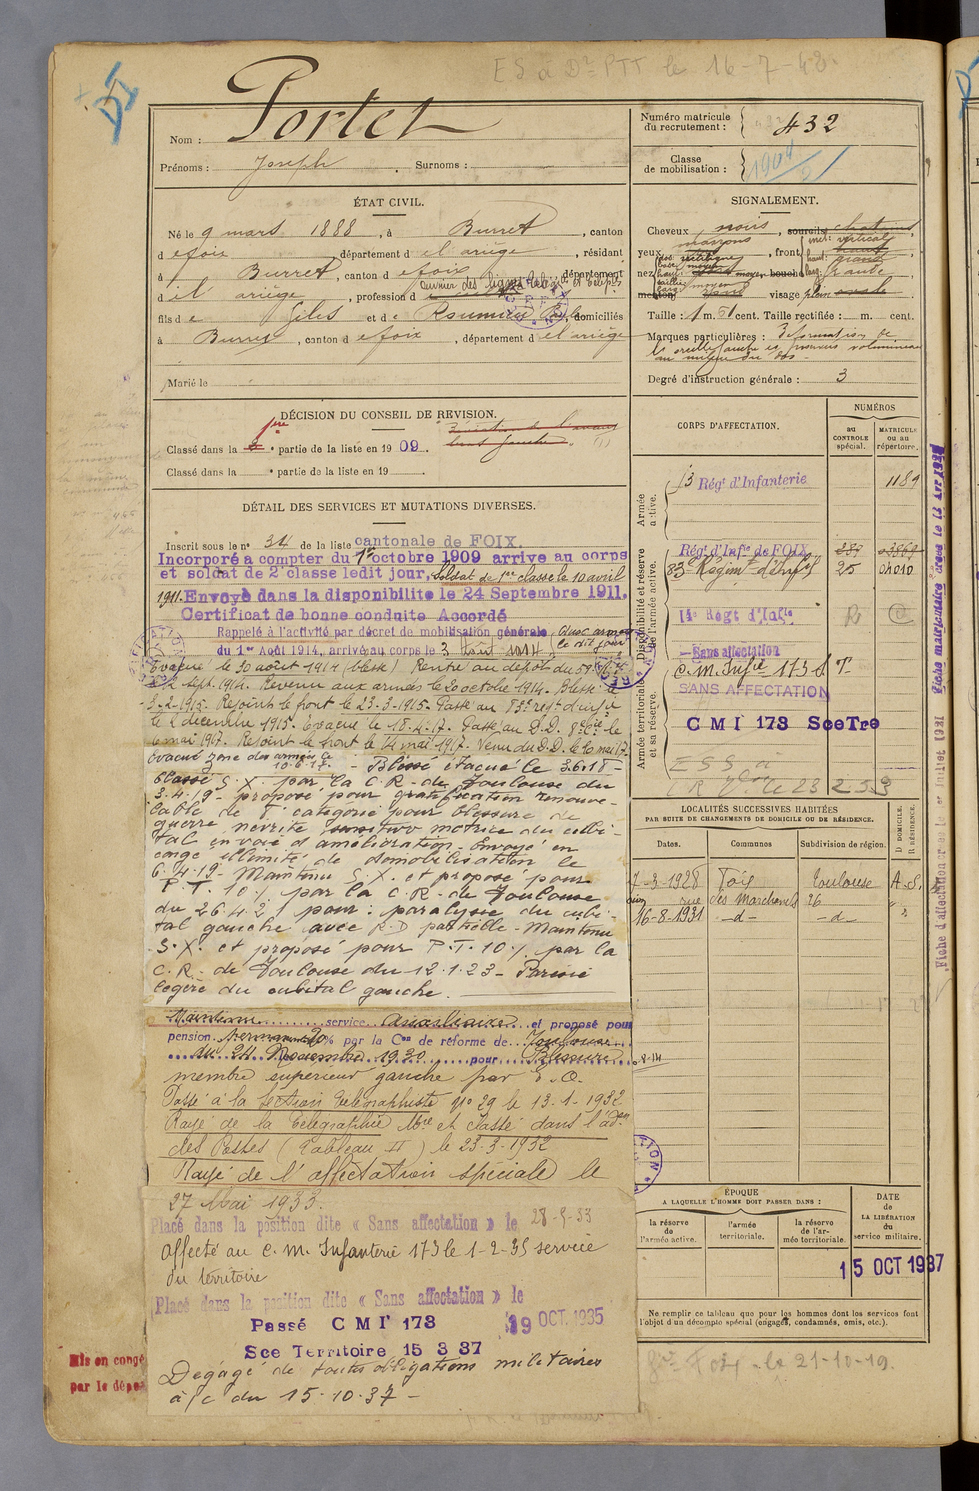 ES à Dr PTT le 16-7-42.
Portet
Nom :
Prénoms : Joseph . Surnoms :
Numéro matricule
du recrutement : 432
Classe
de mobilisation : 1904/21
ÉTAT CIVIL.
Né le 9 mars 1888, à Burret, canton
de foix, département de l'ariège, résidant
à Burret, canton de foix, département
d el' ariège, profession d
fils de Giles et de Roumieu, domiciliés
à Burret, canton de foix, département de l'ariège
Marié le
SIGNALEMENT.
Cheveux noirs, sourcils chatains
yeux marrons, front
nez moyen bouche
menton rond visage plein ovale
Taille : 1 m. 51 cent. Taille rectifiée : m. cent.
Marques particulières : Déformation de
au milieu du dos.
Degré d'instruction générale : 3
DÉCISION DU CONSEIL DE REVISION.
Classé dans la 1ère partie de la liste en 1909.
Classé dans la e partie de la liste en 19
DÉTAIL DES SERVICES ET MUTATIONS DIVERSES.
Inscrit sous le n° 34 de la liste cantonale de FOIX.
Incorporé a compter du 1er octobre 1909 arrive au corps
et soldat de 2e classe ledit jour, Soldat de 1re classe le 10 avril
1911. Envoyé dans la disponibilite le 24 Septembre 1911.
Certificat de bonne conduite Accordé
Rappelé à l'activité par décret de mobilisation générale
du 1er Août 1914, arrivé au corps le 3 Août 1914.
Evacué le 30 août 1914 (blessé) Rentré au dépôt du 59e
sept. 1914. Revenu aux armées le 20 octobre 1914. Blessé le
3-2-1915. Rejoint le front le 23-3-1915. Passé au 83e regt d'infie
le 2 décembre 1915. Evacué le 18.4.17. Passé au D.D. 8e Cie le
6 mai 1917. Rejoint le front le 14 mai 1917. Venu du D.D. le 10 mai 17.
Evacué zone des armées le
10.6.17. - Blessé évacué le 3.6.18 -
Classé S.X. par la C.R. de Toulouse du
3.4.19 - proposé pour gratification renouve-
lable de 8e catégorie pour blessure de
guerre névrite sensitivo motrice du cubi-
tal en voie d'amélioration - Envoyé en
congé illimité de démobilisation le
6.4.19 - Maintenu S.X. et proposé pour
P.T. 10% par la C.R. de Toulouse
du 26.4.21 pour : paralysie du cubi-
tal gauche avec R.D partielle - Maintenu
S.X. et proposé pour P.T. 10% par la
C.R. de Toulouse du 12.1.23 - Parésie
légère du cubital gauche.
Maintenu service auxiliaire et proposé pour
pension Permanente 20% par la Con de réforme de Toulouse
du 24 Novembre 1930 pour Blessure
membre supérieur gauche par E.O.
Passé à la Section Télégraphiste N° 29 le 13-1-1932
Rayé de la Télégraphie Mre et classé dans l'adon
des Postes (Tableau II) le 23-3-1932
Rayé de l'affectation spéciale le
27 Mai 1933.
Placé dans la position dite « Sans affectation » le 28-5-33
affecté au C. M. Infanterie 173 le 1-2-35 service
du territoire
Placé dans la position dite « Sans affectation » le
19 OCT. 1935
Passé C M I 173
Sce Territoire 15 3 37
Dégagé de toutes obligations militaires
à/c du 15-10-37 -
Mis en congé
par le dépôt
CORPS D'AFFECTATION.
NUMÉROS
au
CONTROLE
spécial.
MATRICULE
ou au
répertoire.
Armée
active.
Disponibilité et réserve
de l'armée active.
Armée territoriale
et sa réserve.
Régt d'Infanterie 1189
Régt d'Infie de FOIX
83e Régiment d'Infie 25
14e Régt d'Infie
Sans affectation
C. M. Infie 173 S. T.
SANS AFFECTATION
C M I 173 SceTre
LOCALITÉS SUCCESSIVES HABITÉES
PAR SUITE DE CHANGEMENTS DE DOMICILE OU DE RÉSIDENCE.
Dates. Communes Subdivision de région.
D DOMICILE.
R RÉSIDENCE.
7-3-1928 Foix Toulouse
rue des Marchands 26
16-8-1931 -d- -d-
ÉPOQUE
A LAQUELLE L'HOMME DOIT PASSER DANS :
la réserve
de l'armée active.
l'armée
territoriale.
la réserve
de l'ar-
mée territoriale.
DATE
de
LA LIBÉRATION
du
service militaire.
15 OCT 1937
Ne remplir ce tableau que pour les hommes dont les services font
l'objet d'un décompte spécial (engagés, condamnés, omis, etc.).
Foix le 21-10-19.